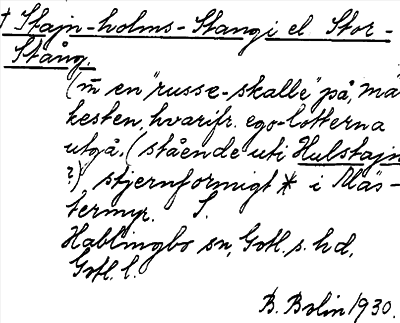 † Stajn-holms-Stangi el Stor-
Stång.
(m̄ en "russe-skalle" på, mä
kesten, hvarifr. ego-lotterna
utgå. (stående uti Hulstajn
?) stjernformigt * i Mäs-
termyr. S.
Hablingbo sn, Gotl. s. hd,
Gotl. l.
B. Bolin 1930.